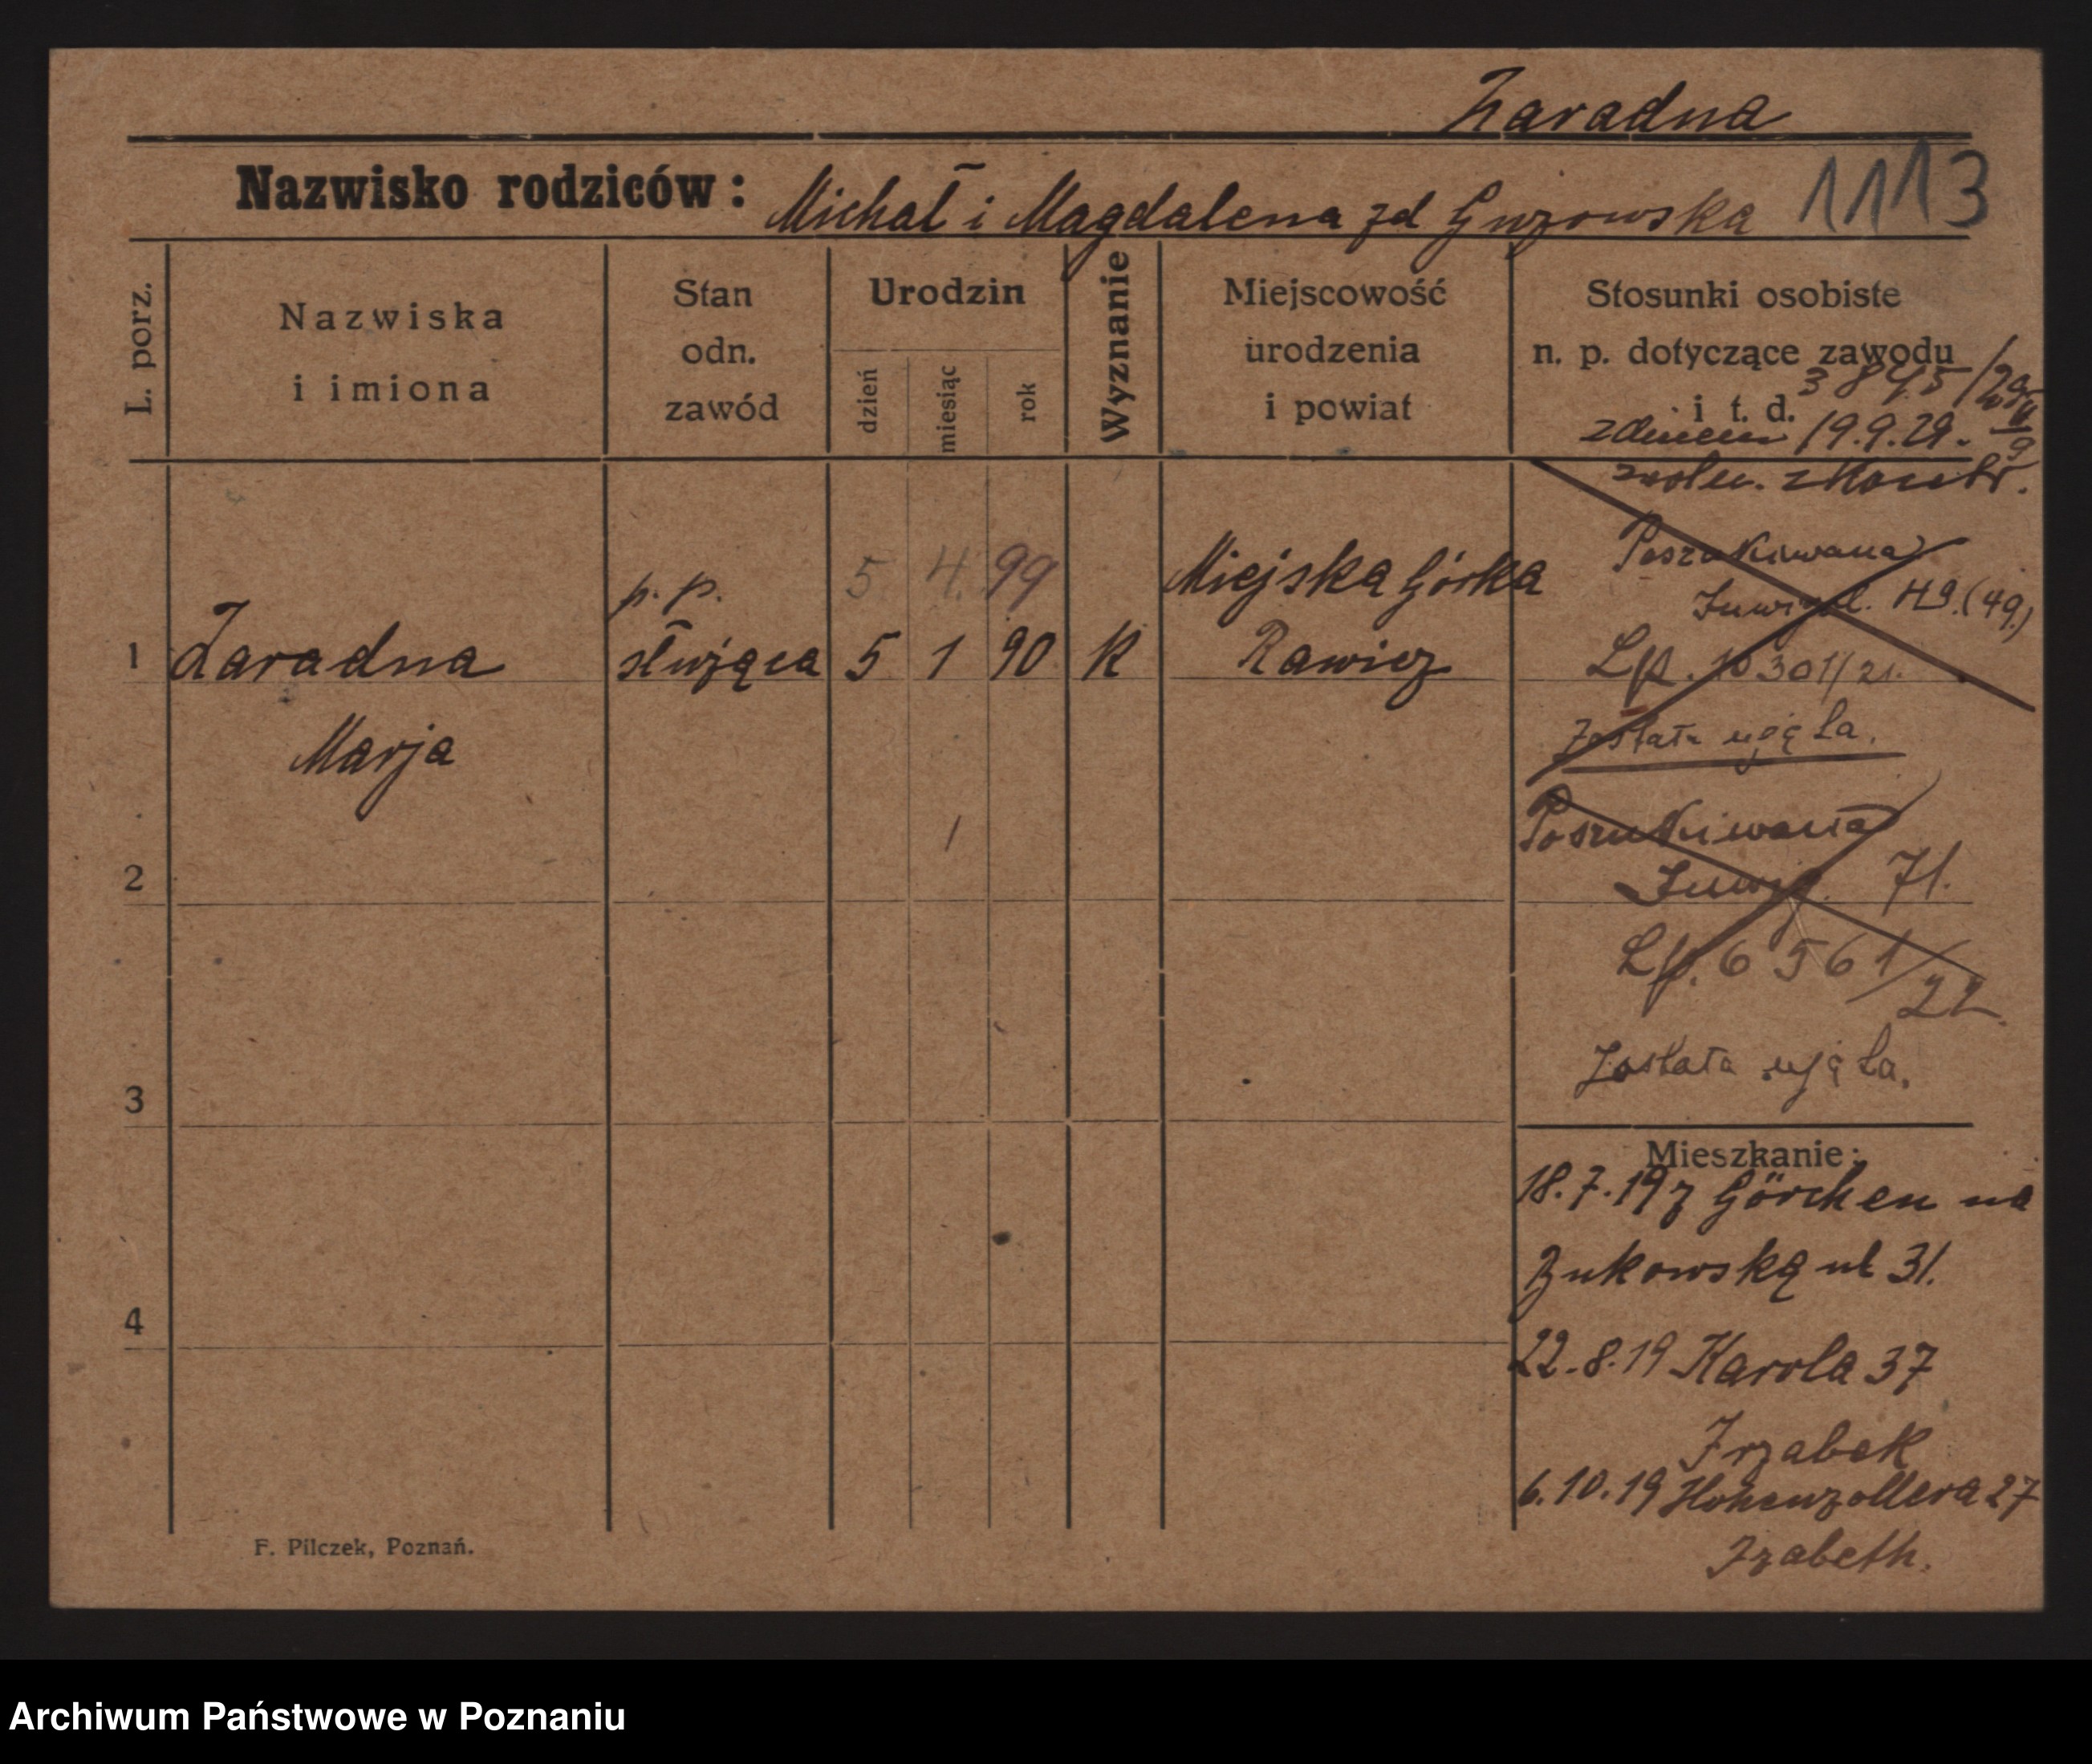 Zaradna
Nazwisko rodziców: Michał i Magdalena zd Guzowska 1113
L. porz.
Nazwiska
i imiona
Stan
odn.
zawód
Urodzin
dzień
miesiąc
rok
Wyznanie
Miejscowość
urodzenia
i powiat
Stosunki osobiste
n. p. dotyczące zawodu
i t. d.
3845/29
19.9.29.
1
Zaradna
Marja
p. p.
służąca
5 4. 99
5 1 90
K
Miejska Górka
Rawicz
Poszukiwana
Inwigil. H9. (49.)
Lp. 10301/21.
Została ujęta.
Poszukiwana
Inwig. 71.
Lp. 6561/22.
Została ujęta.
2
3
4
Mieszkanie:
18.7.19 z Görchen na
Bukowską ul 31.
22.8.19 Karola 37
Jrzabek
6.10.19 Hohenzollera 27
Jzabeth.
F. Pilczek, Poznań.
Archiwum Państwowe w Poznaniu